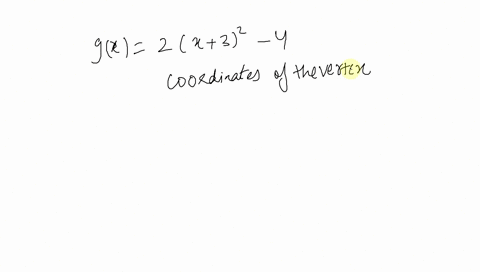 g(x) = 2(x+3)² - 4
coordinates of the vertex